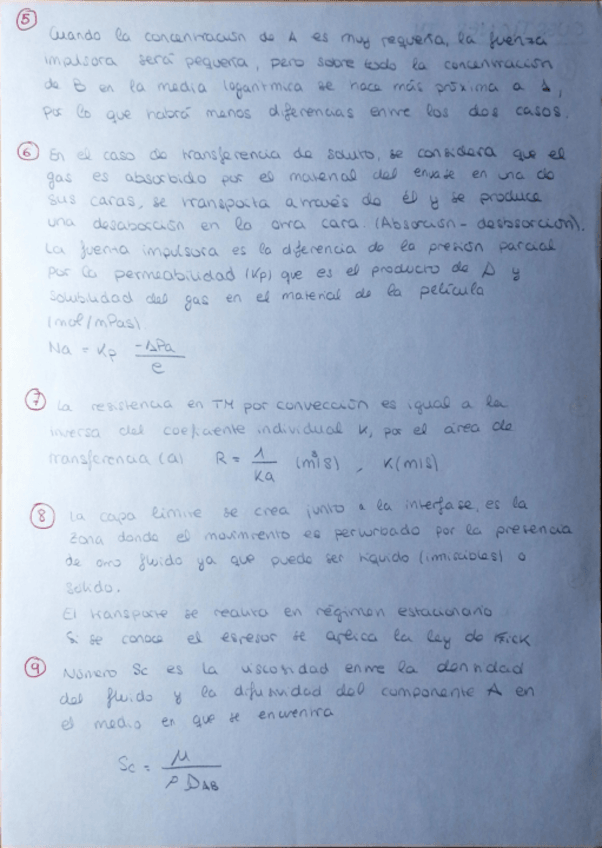 5
Cuando la concentración de A es muy pequeña, la fuerza
impulsora será pequeña, pero sobre todo la concentración
de B en la media logarítmica se hace más próxima a 1,
por lo que habrá menos diferencias entre los dos casos.
6 En el caso de transferencia de soluto, se considera que el
gas es absorbido por el material del envase en una de
sus caras, se transporta a través de él y se produce
una desabsorción en la otra cara. (Absorción - desabsorción).
La fuerza impulsora es la diferencia de la presión parcial
por la permeabilidad (Kp) que es el producto de D y
solubilidad del gas en el material de la película
(mol/mPas)
Na = Kp -ΔPa / e
7 La resistencia en TM por convección es igual a la
inversa del coeficiente individual K, por el área de
transferencia (a) R = 1 / Ka , K(m/s)
8 La capa límite se crea junto a la interfase, es la
zona donde el movimiento es perturbado por la presencia
de otro fluido ya que puede ser líquido (inmiscibles) o
sólido.
El transporte se realiza en régimen estacionario
Si se conoce el espesor se aplica la ley de Fick
9 Número Sc es la viscosidad entre la densidad
del fluido y la difusividad del componente A en
el medio en que se encuentra
Sc = μ / ρ DAB